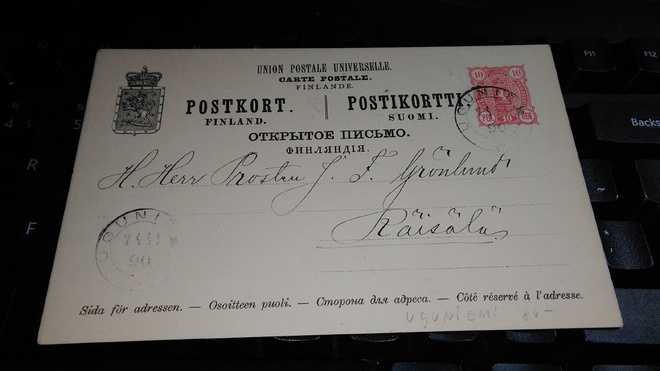 UNION POSTALE UNIVERSELLE.
CARTE POSTALE.
FINLANDE.
POSTKORT. | POSTIKORTTI
FINLAND. SUOMI.
ОТКРЫТОЕ ПИСЬМО.
ФИНЛЯНДІЯ.
10 10
PEN. 10 ПЕН.
UGUNIE
90
H. Herr Prosten J. F. Grönlund
Räisälä
UGUNIE
90
Sida för adressen. — Osoitteen puoli. — Сторона для адреса. — Côté réservé à l'adresse.
UGUNIEMI 80-
F11
F12
Backs